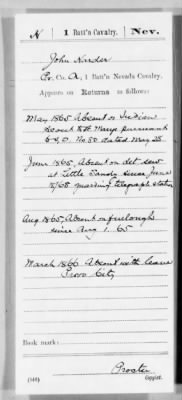 N | 1 Batt'n Cavalry, | Nev.
John Nander
Pv. Co. A, 1 Batt'n Nevada Cavalry.
Appears on Returns as follows:
May 1865 Absent on Indian
Scout 18th Mary pursuant
S.O. No 80 dated May 25
June 1865, Absent on det. serv
at Little Sandy since June
15/65 guarding telegraph station
Aug 1865, Absent on furlough
since Aug 1. 65
March 1866 Absent with leave
Provo City
Book mark:
Procter
(546) Copyist.